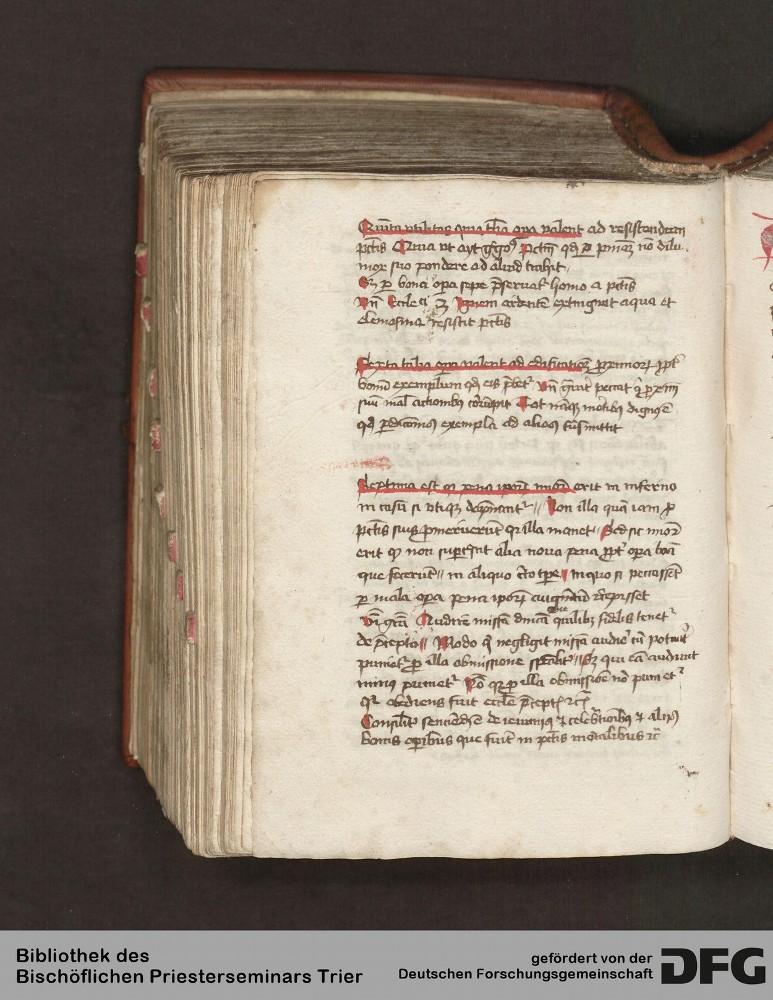 Quinta utilitas quia talia opa valent ad resistendum
pctis Quia ut ayt ggoꝰ Pctm qd p pniam nō dilu
mox suo pondere ad aliud trahit
Sz p bona opa sepe pservat homo a pctis
Vn Eccleci 3 Ignem ardentē extingwit aqua et
elemosina resistit pctis
Sexta talia opa valent ad edificatioēz proximorz ppt
bonū exemplum qd eis pbet Vn peccat
suū mal actionibꝰ corrūpit Tot namqz mortibꝰ dignꝰ ē
qd pdicionis exempla ad alios tūsmittit
Septima est qz pena ipoꝝ minor erit in inferno
in casu si utiqz dāpnant Non illa quā iam p
pctis suis pmeruerunt qz illa manet Sed sic minor
erit qz non supcrescit alia nova pena ppt opa bona
que fecerūt in aliquo cto tpe in quo si peccassēt
p mala opa pena ipoꝝ recepisset
Vn gra Audire missā dnicā die quilibz fidelis tenet
de pcepto Modo qi negligit missā audire cū potuit
puniet p illa obmissione spealit Sz qui eā audivit
minus puniet qz p illa obmissiōe nō puniet
qz obediens fuit ecclie pcept
Consilit senciēdū ē de ieiuniis et celebrationibꝰ et aliis
bonis operibus que fiūt in pctis mortalibus rc
Bibliothek des
Bischöflichen Priesterseminars Trier
gefördert von der
Deutschen Forschungsgemeinschaft
DFG